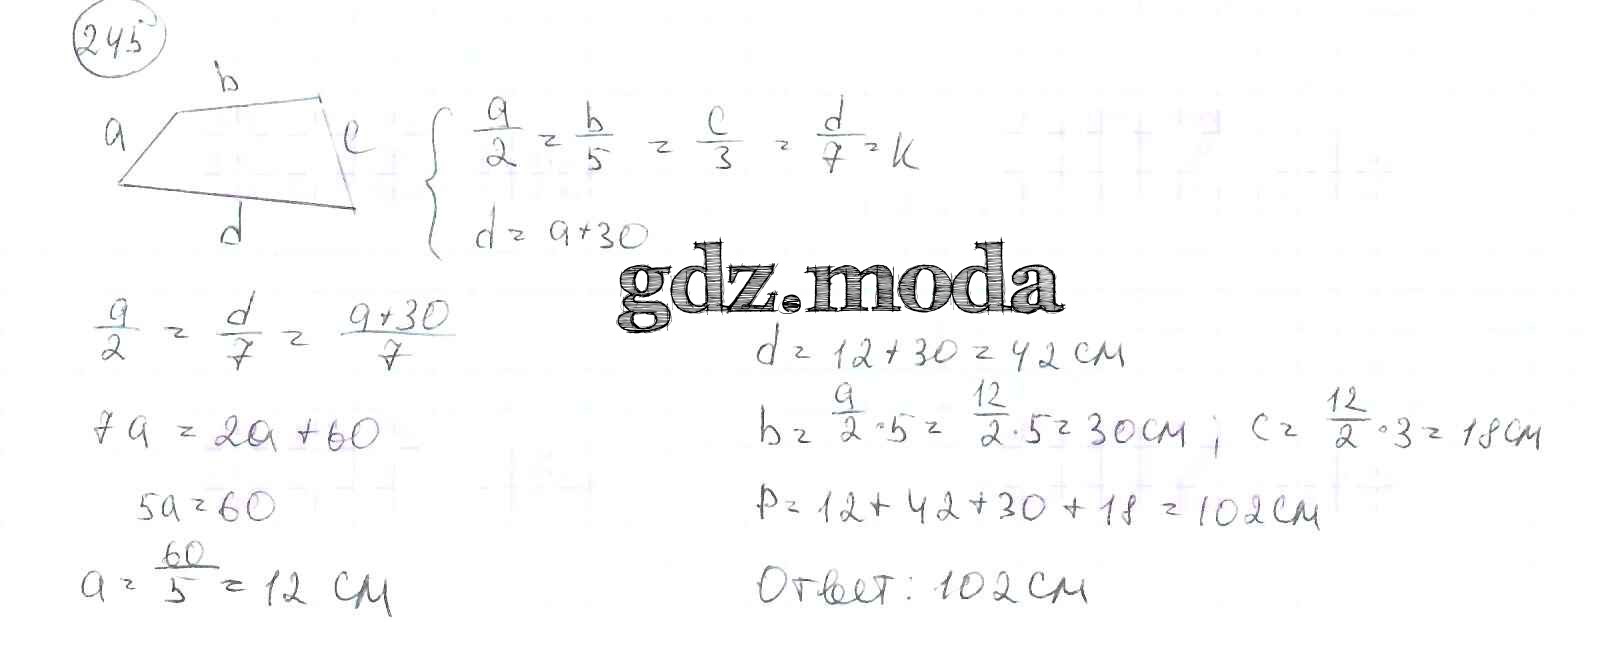 245
b
a
c
d
a/2 = b/5 = c/3 = d/7 = k
d = a+30
gdz.moda
a/2 = d/7 = a+30/7
7a = 2a+60
5a = 60
a = 60/5 = 12 см
d = 12+30 = 42 см
b = a/2 · 5 = 12/2 · 5 = 30 см ; c = 12/2 · 3 = 18 см
P = 12 + 42 + 30 + 18 = 102 см
Ответ: 102 см